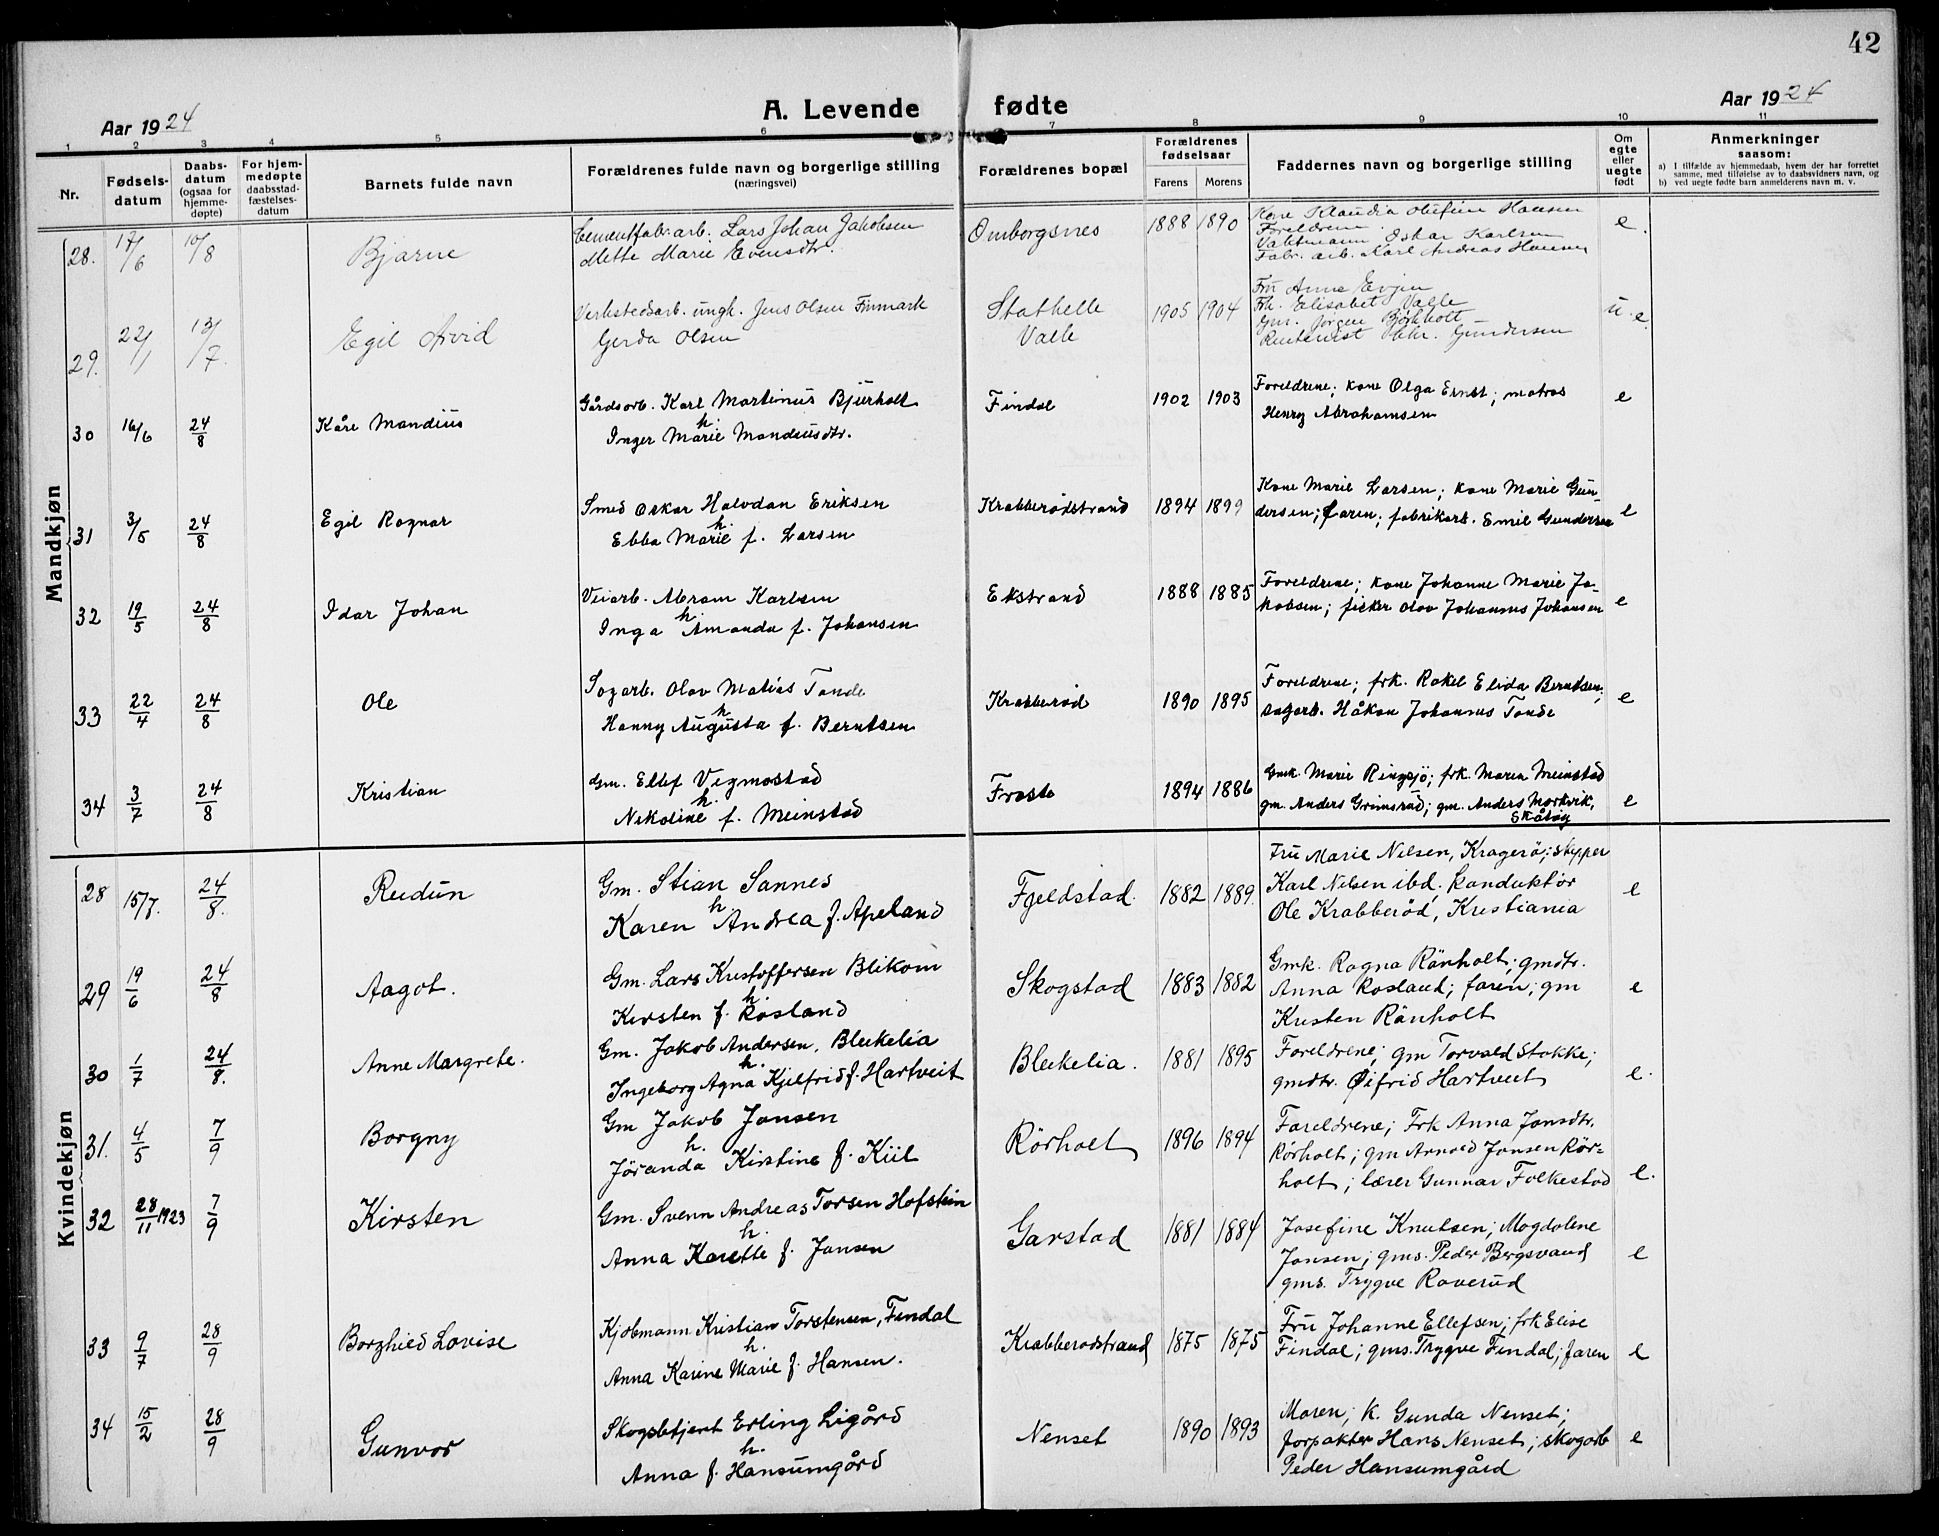 42
Aar 1924
A. Levende fødte
Aar 1924
1 2 3 4 5 6 7 8 9 10 11
Nr.
Fødsels-
datum
Daabs-
datum
(ogsaa for
hjemme-
døpte)
For hjem-
medøpte
daabsstad-
fæstelses-
datum
Barnets fulde navn
Forældrenes fulde navn og borgerlige stilling
(næringsvei)
Forældrenes bopæl
Forældrenes
fødselsaar
Farens Morens
Faddernes navn og borgerlige stilling
Om
egte
eller
uegte
født
Anmerkninger
saasom:
a) I tilfælde av hjemmedaab, hvem der har forrettet
samme, med tilføielse av to daabsvidners navn, og
b) ved uegte fødte barn anmelderens navn m. v.
Mandkjøn
28. 17/6 10/8 Bjarne
Cementfabr.arb. Lars Johan Jakobsen
Mette Marie Evensdtr.
Omborgsnes 1888 1890
Kone Klaudia Olufine Hansen
Foreldrene.
Vaktmann Oskar Karlsen
Fabr. arb. Karl Andreas Hansen
e.
29. 22/1 13/7. Egil Arvid
Verkstedsarb. ungk. Jens Olsen Finmark
Gerda Olsen
Stathelle
Valle
1905 1904
Fru Anna Evjen
Frk. Elisabet Valle
Gm. Jørgen Bjørkholt
Gundersen
u.e.
30 16/6 24/8 Kåre Mandius
Gårdsarb. Karl Martinus Bjurholt
h.
Inger Marie Mandiusdtr.
Findal 1902 1903
Foreldrene; kone Olga Ernst; matros
Henry Abrahamsen
e
31 3/5 24/8 Egil Ragnar
Smed Oskar Halvdan Eriksen
h.
Ebba Marie f. Larsen
Krabberødstrand 1894 1899
Kone Marie Larsen; kone Marie Gun-
dersen; faren; fabrikarb. Emil Gundersen
e
32 19/5 24/8 Idar Johan
Veiarb. Abram Karlsen
h.
Inga Amanda f. Johansen
Ekstrand 1888 1885
Foreldrene; kone Johanne Marie Ja-
kobsen; fisker Olav Johannes Johansen
e
33 22/4 24/8 Ole
Sagarb. Olav Matias Tande
h.
Hanny Augusta f. Berntsen
Krabberød 1890 1895
Foreldrene; frk. Rakel Elida Berntsen;
sagarb. Håkon Johannes Tande
e
34 3/7 24/8 Kristian
Gm. Ellef Vegmostad
h.
Nikoline f. Meinstad
Froste 1894 1886
Gmk. Marie Ringsjø; frk. Maren Meinstad
gm. Anders Grimsrud; gm. Anders Morkvik,
Skåtøy
e
Kvindekjøn
28 15/7. 24/8. Reidun
Gm. Stian Sannes
h.
Karen Andrea f. Apeland
Fjeldstad. 1882 1889.
Fru Marie Nilsen, Kragerø; skipper
Karl Nilsen ibd. konduktør
Ole Krabberød, Kristiania
e
29 19/6 24/8 Aagot.
Gm. Lars Kristoffersen Blikom
h.
Kirsten f. Rosland
Skogstad 1883 1882
Gmk. Ragna Rønholt; gmdtr.
Anna Rosland; faren; gm
Kristen Rønholt
e
30 1/7 24/8. Anne Margrete.
Gm. Jakob Andersen, Blekelia
h.
Ingeborg Agna Kjelfrid f. Hartveit
Blekelia. 1881 1895
Foreldrene; gm Torvald Stokke;
gmdtr. Øifrid Hartveit
e.
31. 4/5 7/9 Borgny
Gm Jakob Jansen
h.
Jøranda Kirstine f. Kiil
Rørholt 1896 1894
Foreldrene; Frk Anna Jansdtr.
Rørholt; gm Arnold Jansen Rør-
holt; lærer Gunnar Folkestad
e.
32 28/11 1923 7/9 Kirsten
Gm. Svenn Andreas Torsen Hofstein
h.
Anna Karette f. Jansen
Garstad 1881 1884
Josefine Knutsen; Magdalene
Jansen; gms. Peder Bergsvand
gms. Trygve Raverud
e
33 9/7 28/9 Borghild Lovise
Kjøbmann Kristian Torstensen, Findal
h.
Anna Karine Marie f. Hansen.
Krabberødstrand 1875 1875
Fru Johanne Ellefsen; frk Elise
Findal; gms. Trygve Findal; faren
e
34 15/2 28/9 Gunvor
Skogsbetjent Erling Ligård
h.
Anna f. Hansumgård
Nenset 1890 1893
Moren; K. Gunda Nenset;
forpakter Hans Nenset; skogarb
Peder Hansumgård
e